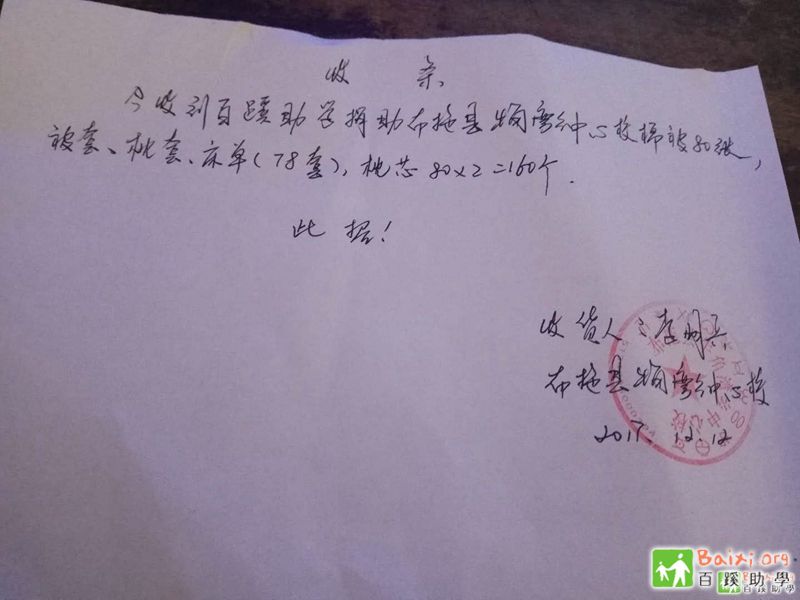 收 条
今收到百蹊助学捐助布拖县拖觉中心校棉被80床,
被套、枕套、床单(78套),枕芯80×2=160个.
此据!
收货人:李明兵
布拖县拖觉中心校
2017.12.12
Baixi.org
百蹊助學